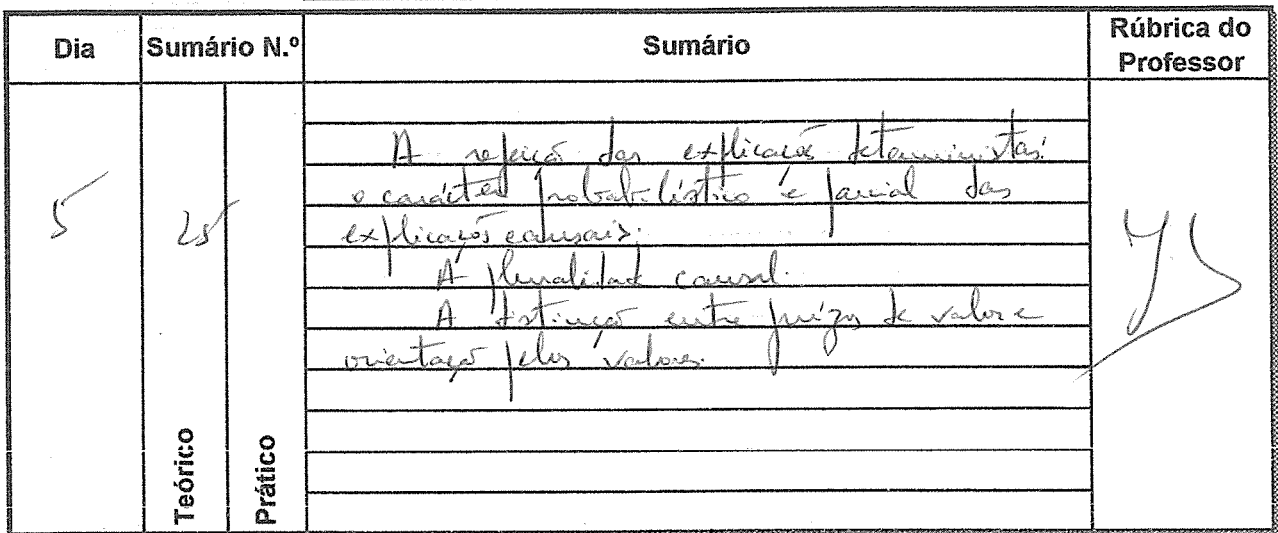 Dia Sumário N.º Sumário Rúbrica do Professor
A rejeição das explicações deterministas:
o carácter probabilístico e parcial das
explicações causais.
5 25
A pluralidade causal.
A distinção entre juízos de valor e
orientação pelos valores.
Teórico
Prático